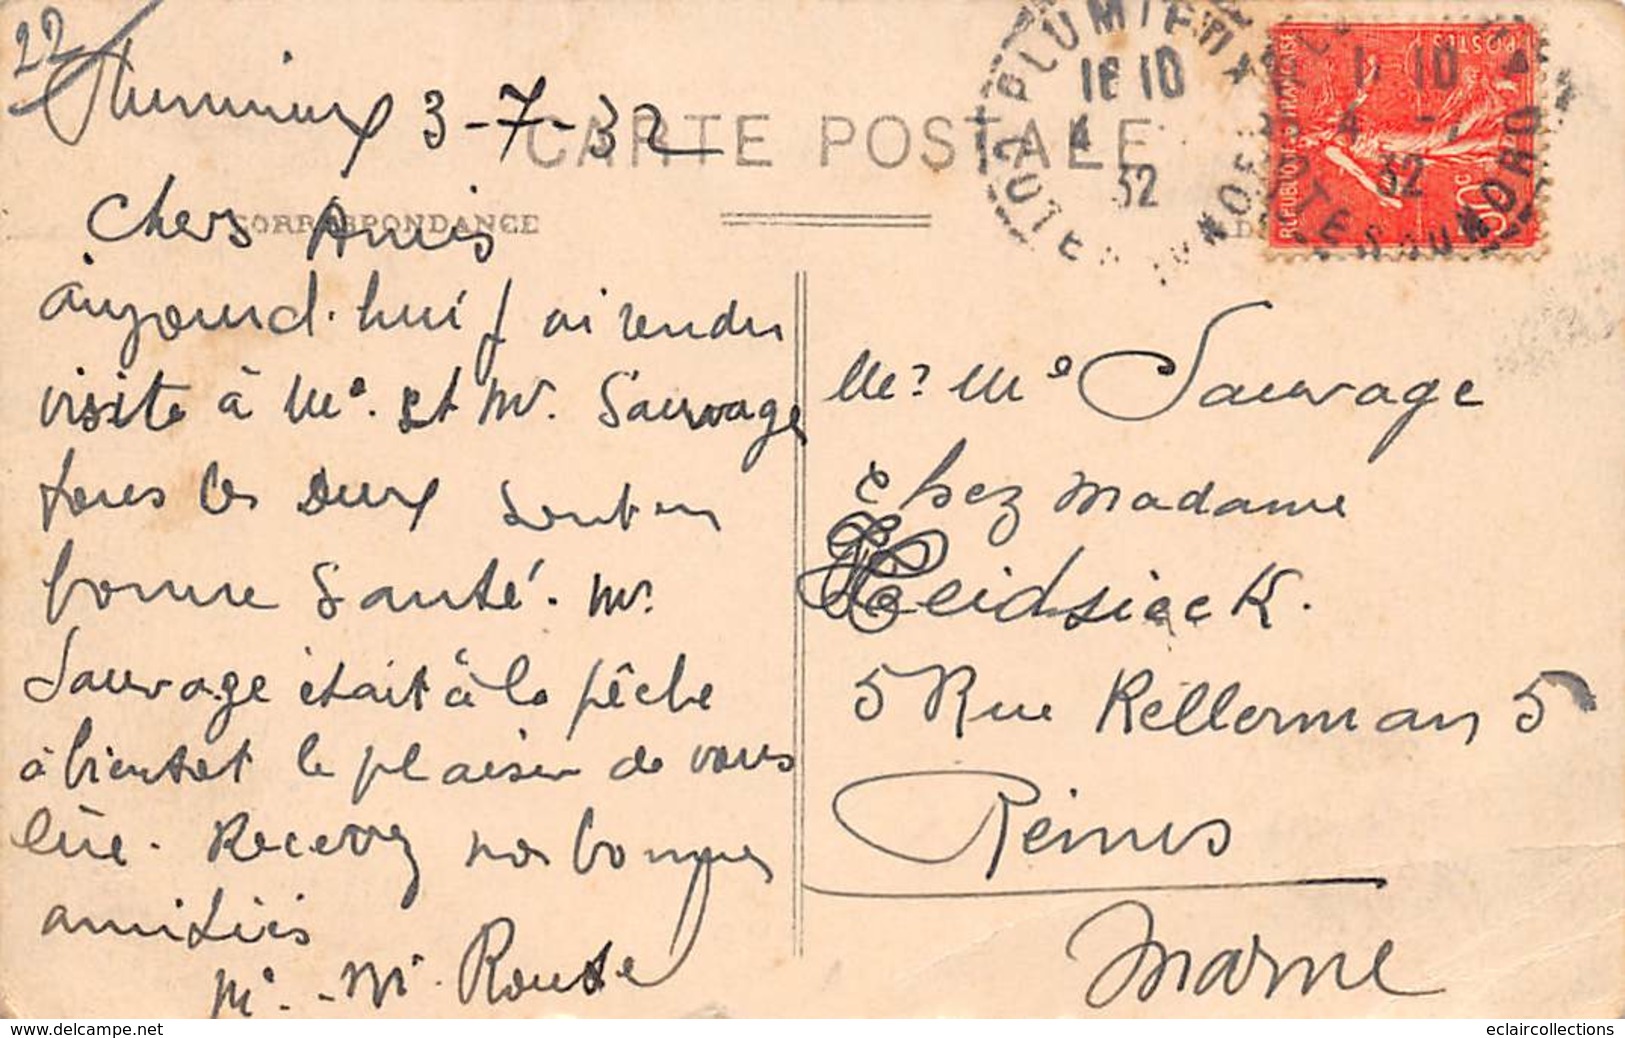 22
Plumieux 3-7-32
CARTE POSTALE
CORRESPONDANCE
Chers Amis
aujourd'hui j'ai rendu
visite à Me. et Mr. Sauvage
tous les Deux sont en
bonne Santé. Mr.
Sauvage était à la pêche
à bientot le plaisir de vous
lire. Recevez nos bonnes
amitiés
Mr. Me.
PLUMIEUX
16 10
4
32
COTES DU NORD
REPUBLIQUE FRANÇAISE
POSTES
50c
Mr. Me Sauvage
Chez Madame
Heidsieck.
5 Rue Kellerman 5
Reims
Marne
eclaircollections